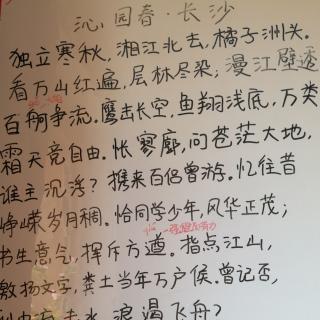 沁园春·长沙
独立寒秋,湘江北去,橘子洲头.
看万山红遍,层林尽染;漫江碧透
百舸争流.鹰击长空,鱼翔浅底,万类
霜天竞自由.怅寥廓,问苍茫大地,
谁主沉浮?携来百侣曾游.忆往昔
峥嵘岁月稠.恰同学少年,风华正茂;
书生意气,挥斥方遒.指点江山,
激扬文字,粪土当年万户侯.曾记否,
到中流击水,浪遏飞舟?